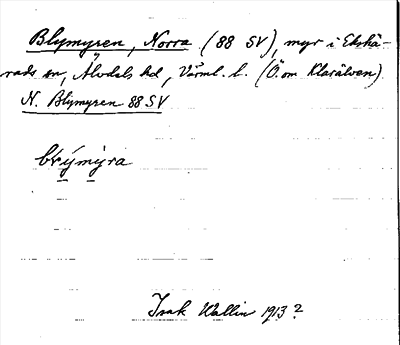 Blymyren, Norra (88 SV), myr i Ekshä-
rads sn, Älvdals hd, Värml. l. (Ö. om Klarälven)
N. Blymyren 88 SV
Isak Wallin 1913?